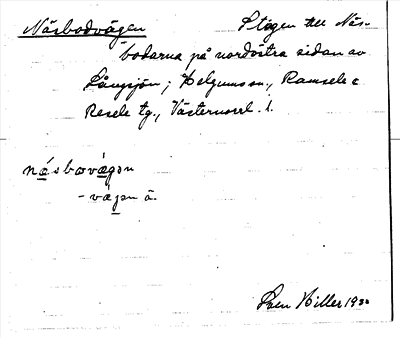 Näsbodvägen Stigen till Näs-
bodarna på nordöstra sidan av
Långsjön; Helgums sn., Ramsele o
Resele tg., Västernorrl. l.
näsbovägan
- vägen ä.
Sven Hiller 1930